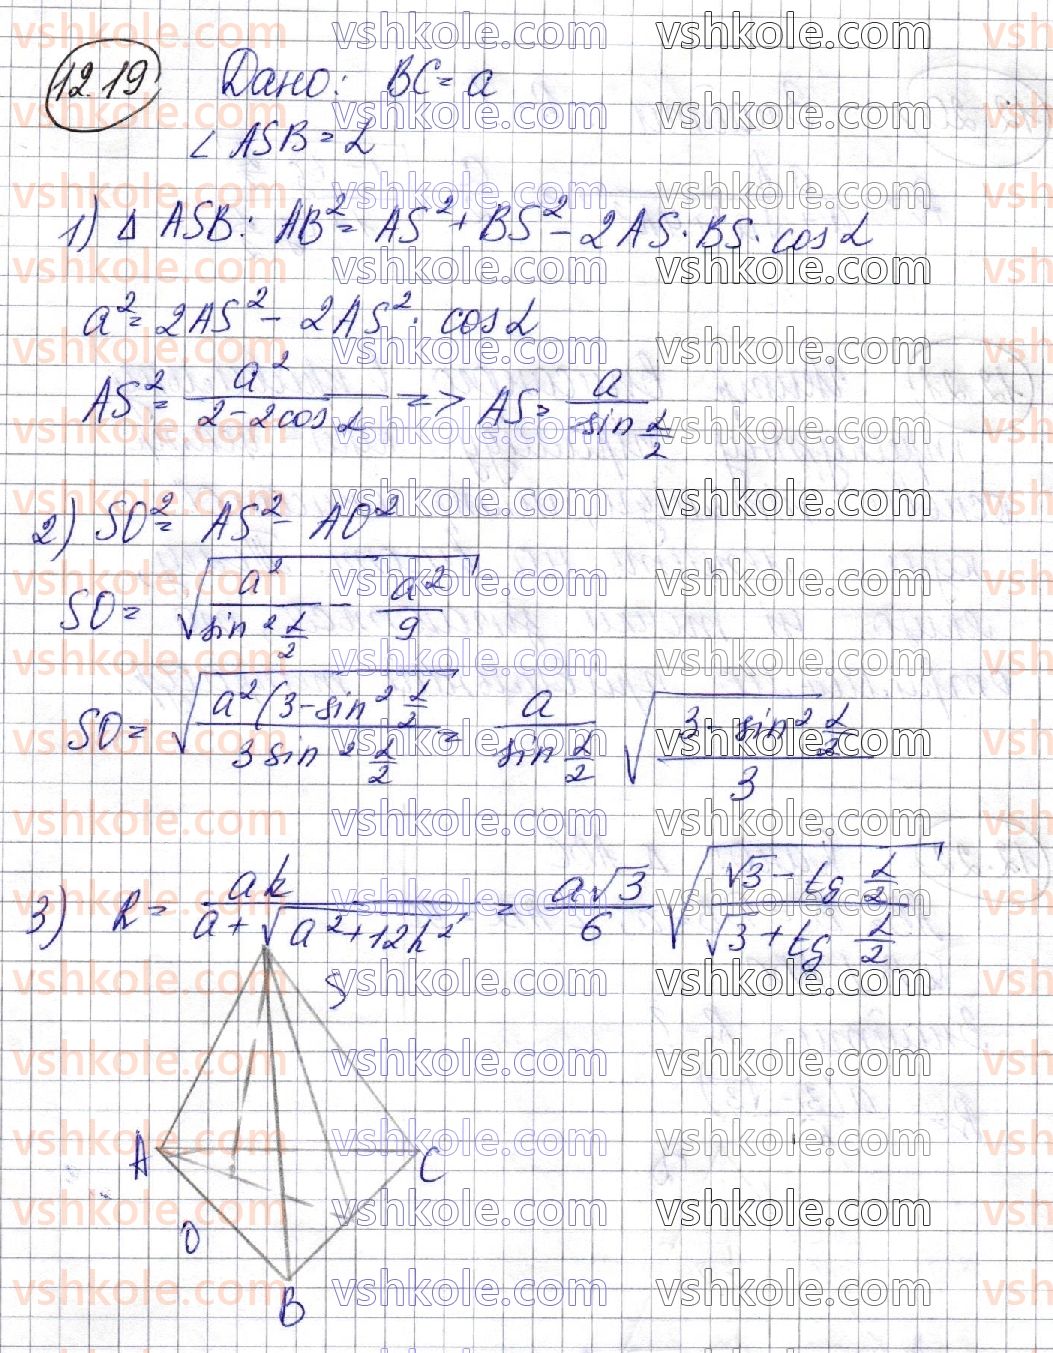 12.19 Дано: BC = a
∠ ASB = α
1) Δ ASB: AB² = AS² + BS² - 2AS · BS · cos α
a² = 2AS² - 2AS² · cos α
AS² = a² / (2 - 2cos α) => AS = a / sin α/2
2) SO² = AS² - AO²
SO = √(a² / sin² α/2 - a² / 9)
SO = √(a²(3 - sin² α/2 / 3 sin² α/2) = a / sin α/2 √(3 - sin² α/2 / 3)
3) r = ah / (a + √(a² + 12h²)) = a√3 / 6 √((√3 - tg α/2) / (√3 + tg α/2))
S
A
C
O
B
vshkole.com